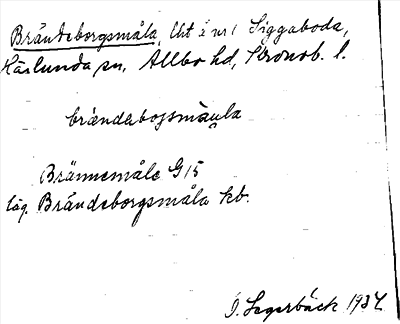 Brändeborgsmåla, lht i nr 1 Siggaboda,
Härlunda sn, Allbo hd, Kronob. l.
brändabojsmåula
Brännemåle G 15
läg. Brändeborgsmåla kb.
Lagerbäck 1934